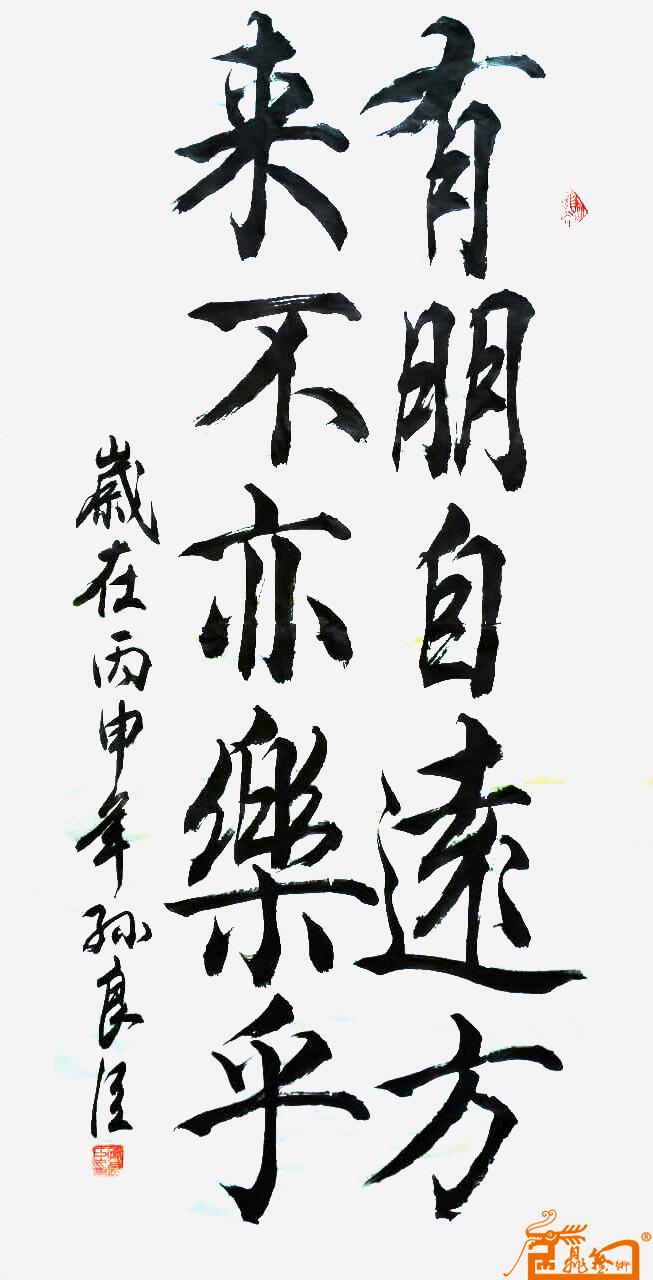 有朋自遠方
来不亦樂乎
歲在丙申年孙良臣